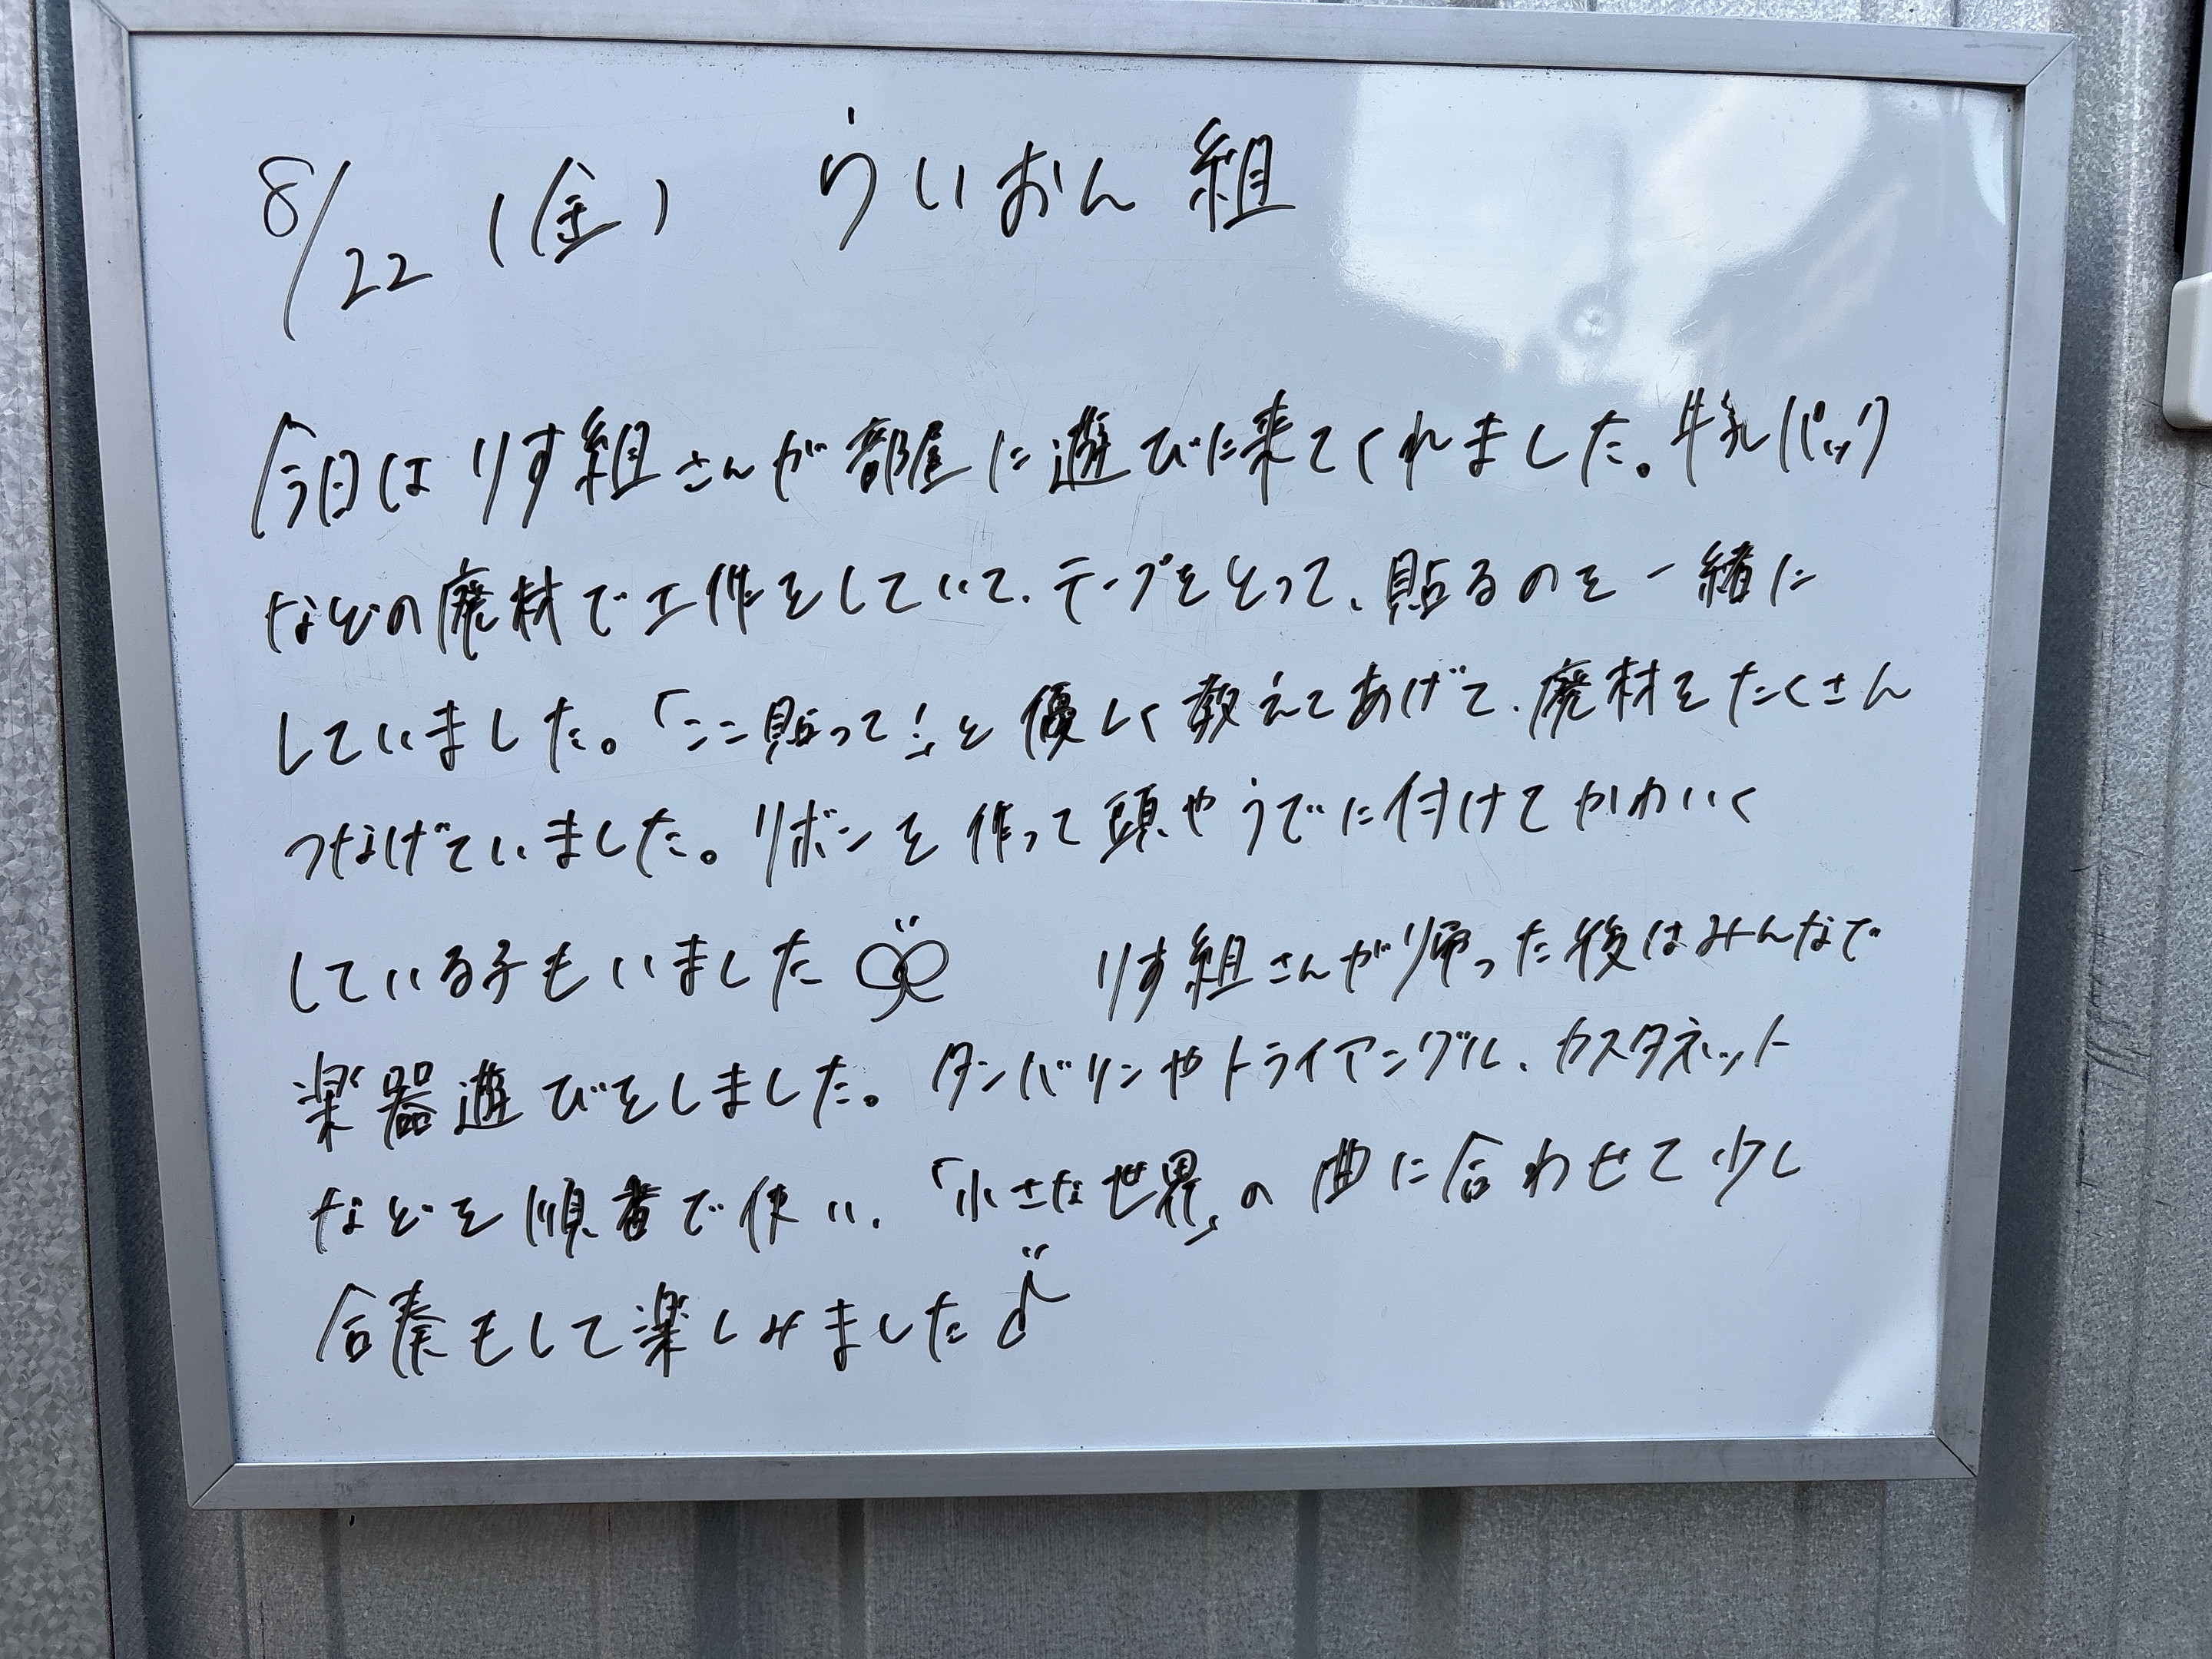 8/22 (金) らいおん組
今日はりす組さんが部屋に遊びに来てくれました。牛乳パック
などの廃材で工作をしていて、テープをとって、貼るのを一緒に
していました。「ここ貼って!」と優しく教えてあげて、廃材をたくさん
つなげていました。リボンを作って頭やうでに付けてかわいく
している子もいました りす組さんが帰った後はみんなで
楽器遊びをしました。タンバリンやトライアングル、カスタネット
などを順番で使い、「小さな世界」の曲に合わせて少し
合奏もして楽しみました♪